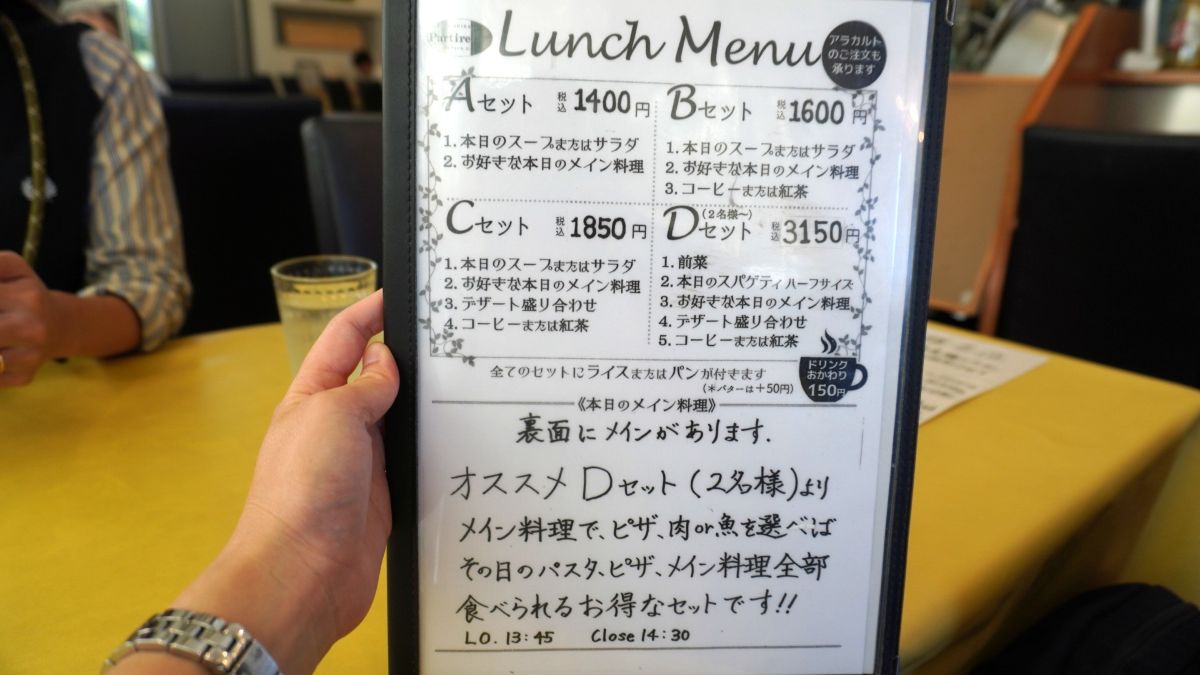 Partire
Lunch Menu
アラカルト
のご注文も
承ります
Aセット 税込 1400円
1. 本日のスープまたはサラダ
2. お好きな本日のメイン料理
Bセット 税込 1600円
1. 本日のスープまたはサラダ
2. お好きな本日のメイン料理
3. コーヒーまたは紅茶
Cセット 税込 1850円
1. 本日のスープまたはサラダ
2. お好きな本日のメイン料理
3. デザート盛り合わせ
4. コーヒーまたは紅茶
D(2名様〜)セット 税込 3150円
1. 前菜
2. 本日のスパゲティハーフサイズ
3. お好きな本日のメイン料理
4. デザート盛り合わせ
5. コーヒーまたは紅茶
全てのセットにライスまたはパンが付きます
(＊バターは＋50円)
ドリンク
おかわり
150円
《本日のメイン料理》
裏面にメインがあります.
オススメ Dセット (2名様)より
メイン料理で、ピザ、肉or魚を選べば
その日のパスタ、ピザ、メイン料理全部
食べられるお得なセットです!!
L.O. 13:45 Close 14:30